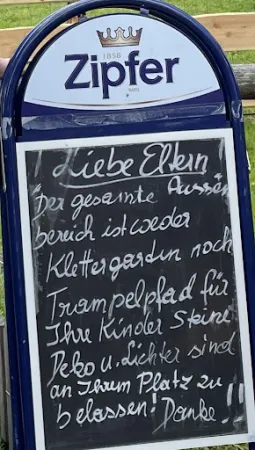 1858
Zipfer
Liebe Eltern!
Der gesamte Aussen
bereich ist weder
Klettergarten noch
Trampelpfad für
Ihre Kinder Steine
Deko u. Lichter sind
an Ihrem Platz zu
belassen! Danke!!